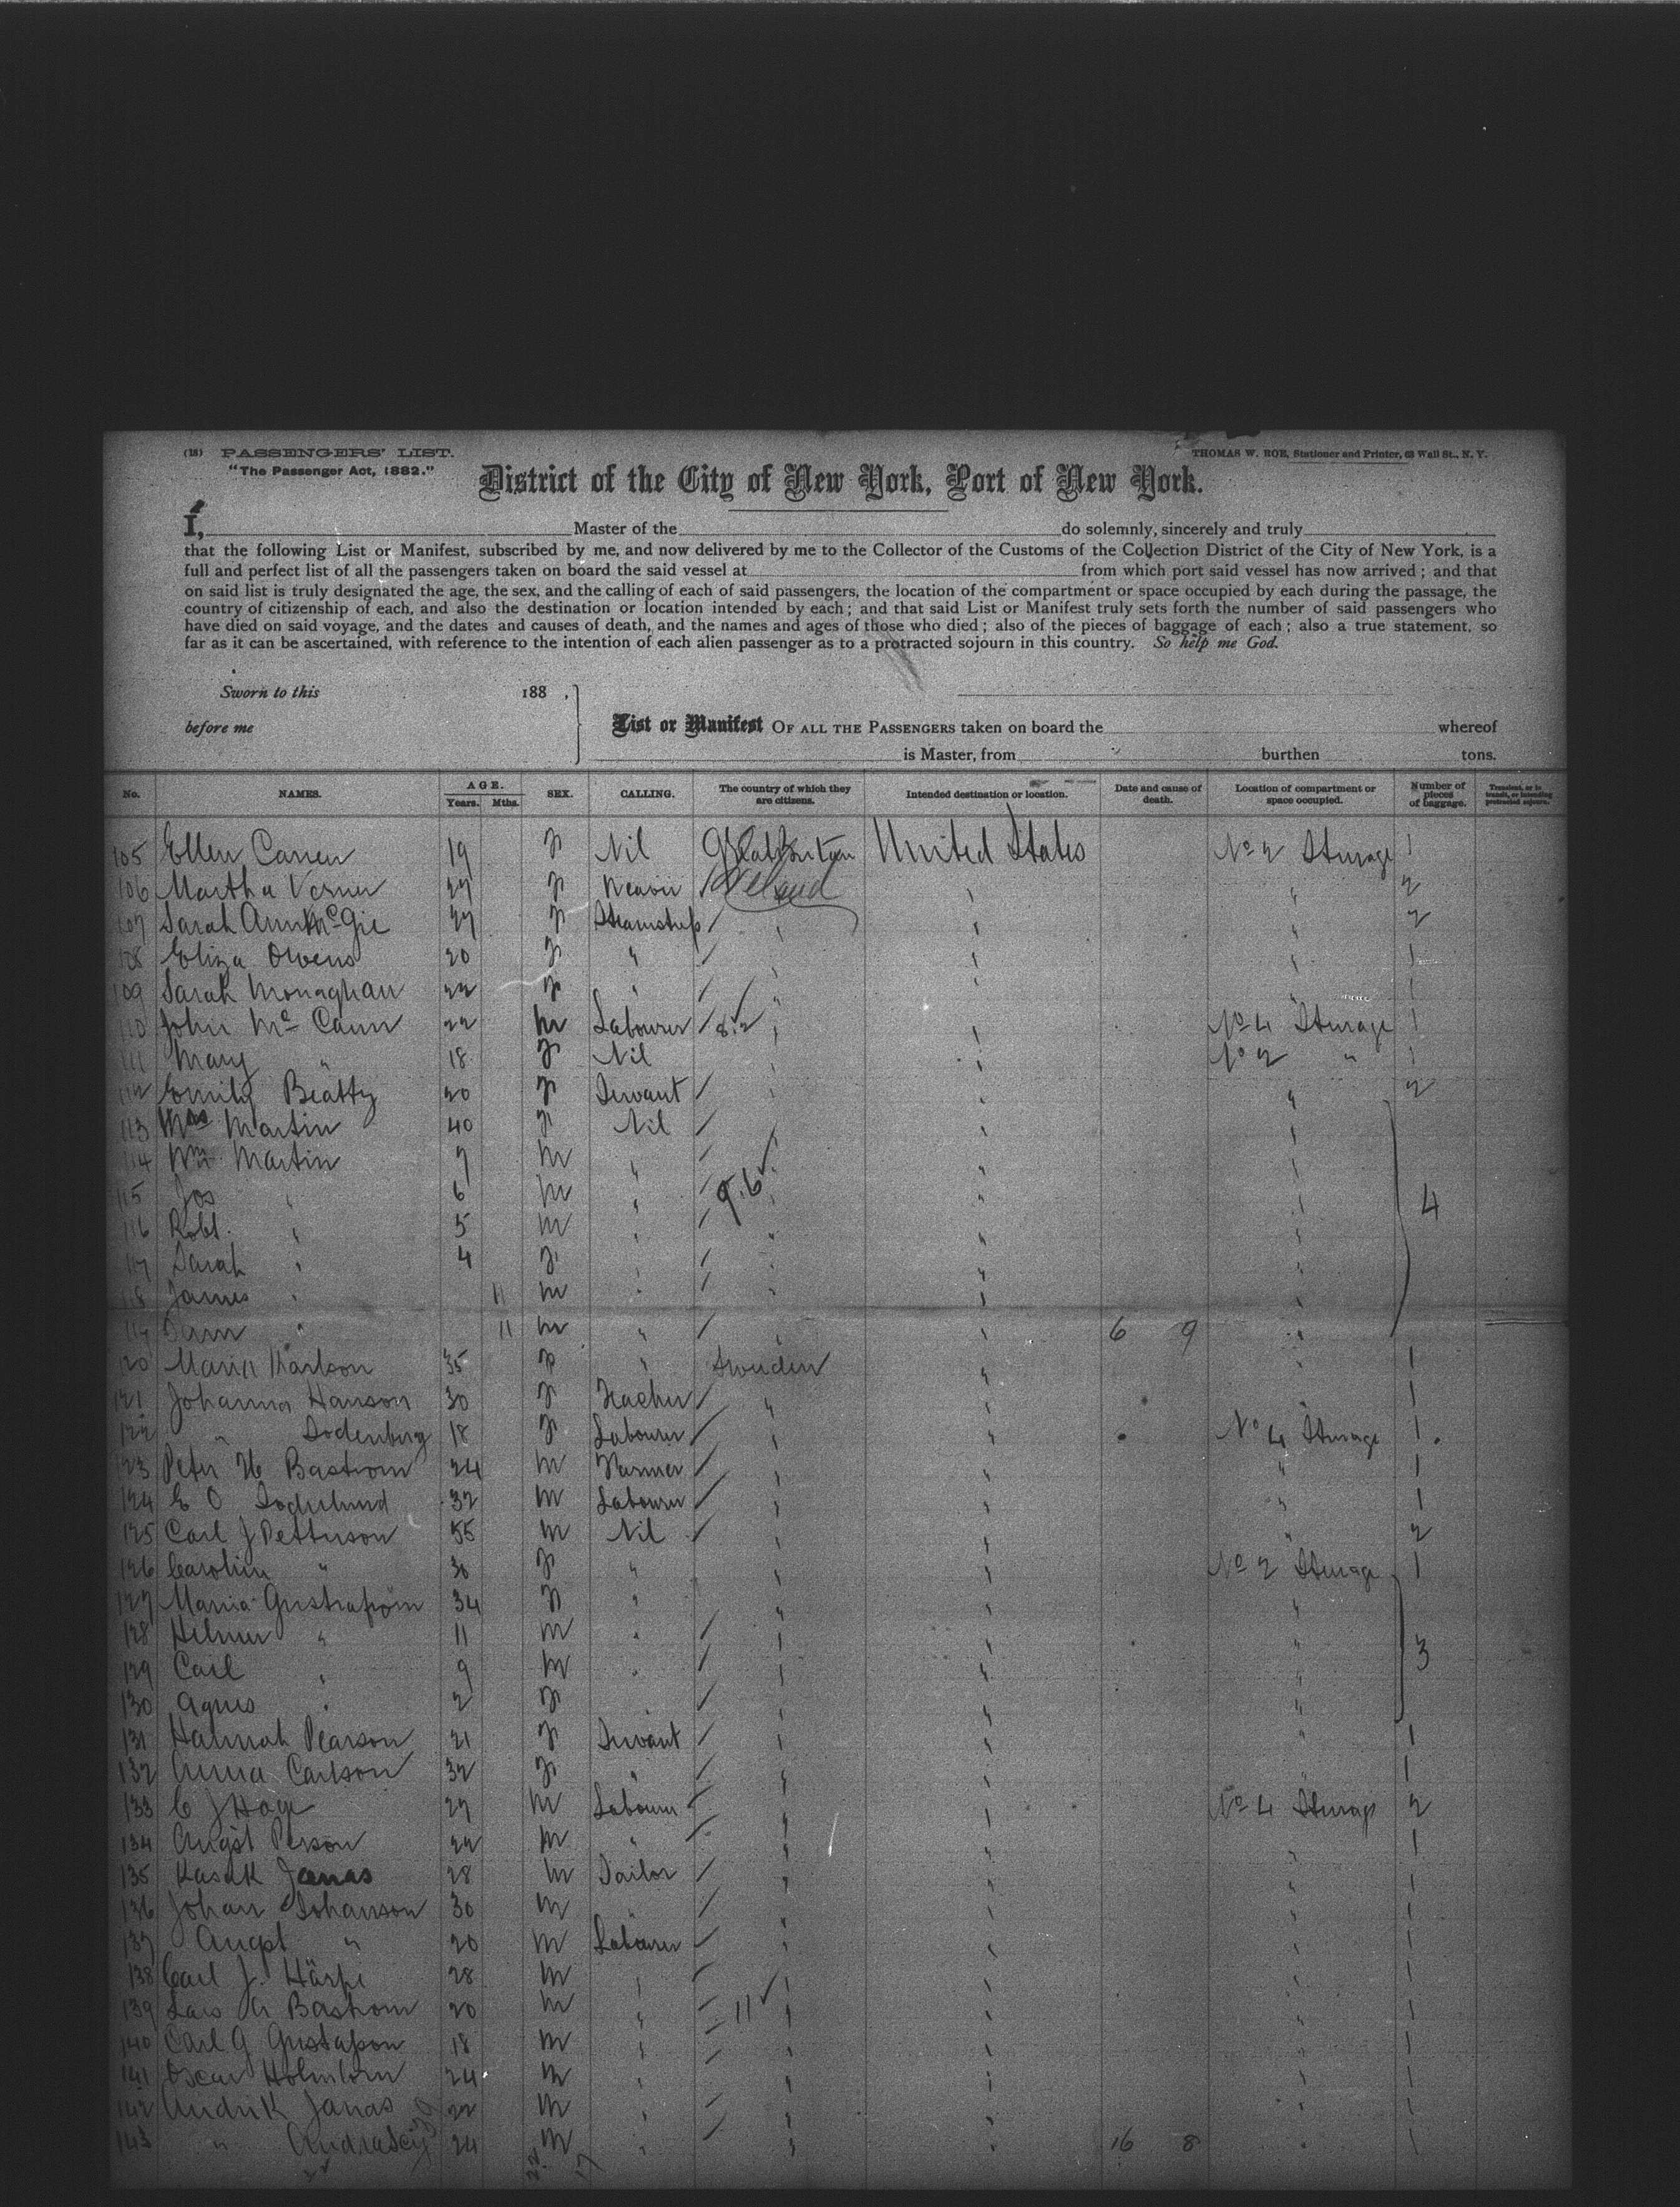 (18) PASSENGERS' LIST.
"The Passenger Act, 1882."
THOMAS W. ROE, Stationer and Printer, 63 Wall St., N. Y.
District of the City of New York, Port of New York.
I, Master of the do solemnly, sincerely and truly
that the following List or Manifest, subscribed by me, and now delivered by me to the Collector of the Customs of the Collection District of the City of New York, is a
full and perfect list of all the passengers taken on board the said vessel at from which port said vessel has now arrived; and that
on said list is truly designated the age, the sex, and the calling of each of said passengers, the location of the compartment or space occupied by each during the passage, the
country of citizenship of each, and also the destination or location intended by each; and that said List or Manifest truly sets forth the number of said passengers who
have died on said voyage, and the dates and causes of death, and the names and ages of those who died; also of the pieces of baggage of each; also a true statement, so
far as it can be ascertained, with reference to the intention of each alien passenger as to a protracted sojourn in this country. So help me God.
Sworn to this 188 .
before me
List or Manifest OF ALL THE PASSENGERS taken on board the whereof
is Master, from burthen tons.
No. NAMES. AGE. Years. Mths. SEX. CALLING. The country of which they are citizens. Intended destination or location. Date and cause of death. Location of compartment or space occupied. Number of pieces of baggage. Transient, or in transit, or intending protracted sojourn.
105 Ellen 19 F Nil Great Britain United States No 2 Sterage 1
106 Martha 27 F Weaver Ireland " " 2
107 Sarah Ann McGie 27 F / " " " 2
108 Eliza Owens 20 F " / " " " 1
109 Sarah Monaghan 22 F " / " " " 1
110 John Mc Cann 22 M Labourer / 8.2 " " No 4 Sterage 1
111 Mary " 18 F Nil " " No 2 " 1
112 Emily Beatty 20 F Servant / " " " 2
113 Mrs Martin 40 F Nil / " "
114 Wm Martin 7 M " / " "
115 Jos " 6 M " / 9.6 " " " 4
116 Robt. " 5 M " / " " "
117 Sarah " 4 F " / " " "
118 James " 11 M " / " " "
119 " 11 M " / " " 6 9 "
120 Maria Karlson 35 F " Sweeden " " 1
121 Johanna Hanson 30 F Teacher / " " 1
122 " Soderberg 18 F Labourer / " " No 4 Sterage 1
123 Peter Bastrom 24 M Farmer / " " " 1
124 E O Soderlund 32 M Labourer / " " " 1
125 Carl J Petterson 55 M Nil / " " " 2
126 Carolin " 30 F " " " No 2 Sterage 1
127 Maria 34 F " " " "
128 Hilmer " 11 M " / " " " 3
129 Carl " 9 M " / " " "
130 Agnes " 2 F / " " "
131 Hannah Pearson 21 F Servant / " " " 1
132 Anna Carlson 32 F " / " " " 1
133 C J 27 M Labourer / " " No 4 Sterage 2
134 Augst Person 22 M " / " " " 1
135 Janas 28 M Tailor / " " " 1
136 Johan Johanson 30 M " / " " " 1
137 Augst " 20 M Labourer / " " 1
138 Carl J. 28 M " / " " " 1
139 Bastrom 20 M " / 11 " " 1
140 Carl G Gustafson 18 M " / " " " 1
141 Oscar 24 M " " " " 1
142 Janas 22 M " / " " " 1
143 " 24 M " / " " 16 8 " 1
22 17